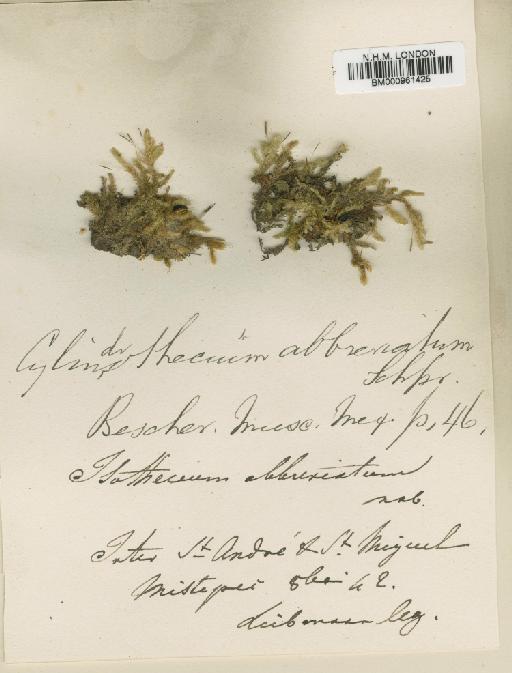 N.H.M. LONDON
BM000961425
Cylindrothecium abbreviatum
Schpr.
Bescher. Musc. Mex. p, 46,
Isothecium abbreviatum
nob.
Inter St André & St Miguel
42.
Liebmann leg.